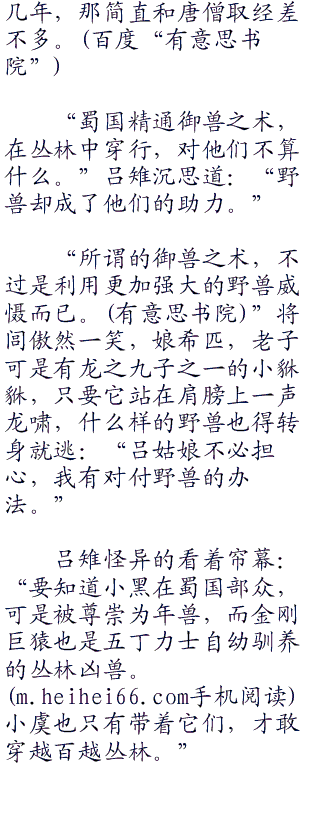 几年，那简直和唐僧取经差
不多。(百度“有意思书
院”)
“蜀国精通御兽之术，
在丛林中穿行，对他们不算
什么。”吕雉沉思道：“野
兽却成了他们的助力。”
“所谓的御兽之术，不
过是利用更加强大的野兽威
慑而已。(有意思书院)”将
闾傲然一笑，娘希匹，老子
可是有龙之九子之一的小貅
貅，只要它站在肩膀上一声
龙啸，什么样的野兽也得转
身就逃：“吕姑娘不必担
心，我有对付野兽的办
法。”
吕雉怪异的看着帘幕：
“要知道小黑在蜀国部众，
可是被尊崇为年兽，而金刚
巨猿也是五丁力士自幼驯养
的丛林凶兽。
(m.heihei66.com手机阅读)
小虞也只有带着它们，才敢
穿越百越丛林。”